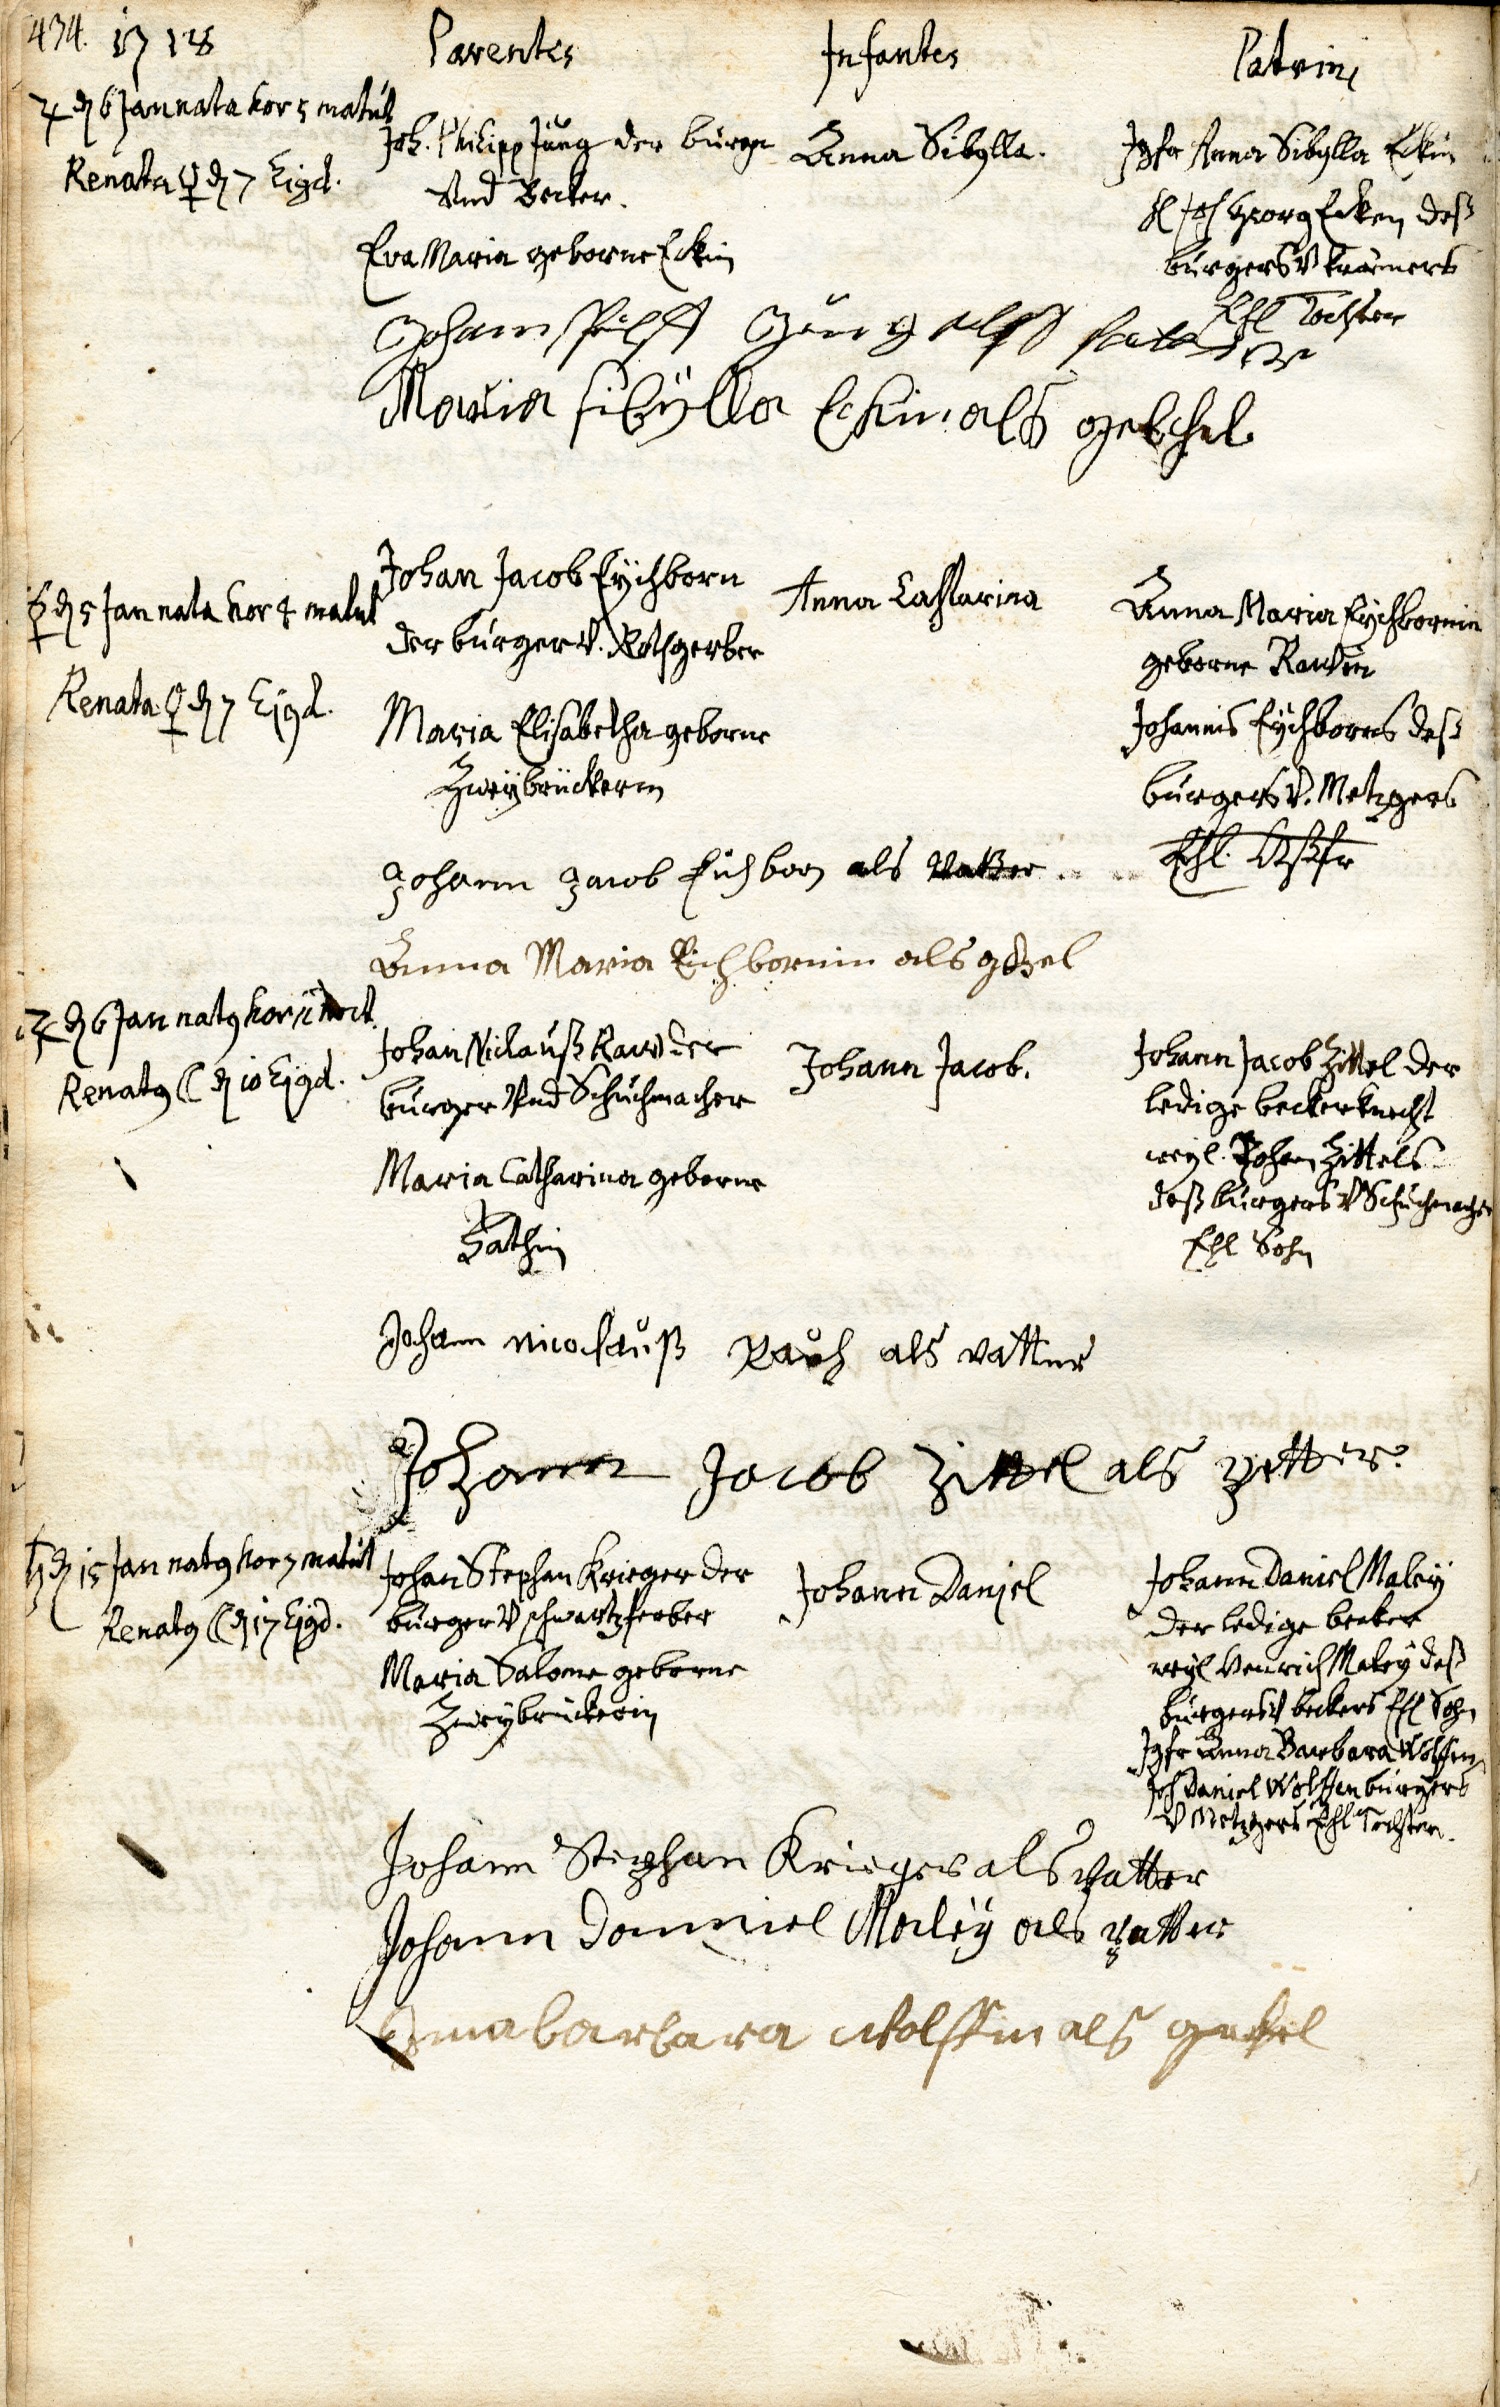 434. 1718 Parentes Infantes Patrini
♃ d 6 Jan nata hor 5 matut
Renata ♀ d 7 Eiqd.
Joh. Philipp Jung der burger
Und Becker.
Eva Maria geborne Eckin
Anna Sibylla.
Jgfr Anna Sibylla Eckin
H Joh Georg Ecken deß
burgers V Krämers
Ehl Tochter
Johann Jung als
Maria sibÿlla Eckin als
☿ d 5 Jan nata hor 4 matut
Renata ♀ d 7 Ejqd.
Johan Jacob Eÿchborn
der burger V. Rothgerber
Maria Elisabetha geborne
Zweÿbrückerin
Anna Catharina
Anna Maria Eÿchbornin
geborne
Johannis Eÿchborns deß
burgers V. Metzgers
Ehl.
Johann Jacob Eichborn als Vatter
Anna Maria Eichbornin als
♃ d 6 Jan natq hor 11 noct.
Renatq ☾ d 10 Ejqd.
Johan Niclauß Rauch der
burger Und Schuchmacher
Maria Catharina geborne
Johann Jacob.
Johann Jacob Zittel der
ledige beckerknecht
weyl. Johan Zittels
deß burgers V Schuchmachers
Ehl Sohn
Johann nicolauß Rauch als vatter
Johann Jacob Zittel als petter
♄ d 15 Jan natq hor 7 matut
Renatq ☾ d 17 Ejqd.
Johan Stephan Krieger der
burger V schwartzferber
Maria Salome geborne
Zweÿbrückerin
Johann Daniel
Johann Daniel Maleÿ
der ledige becker
weyl Henrich Maleÿ deß
burgers V beckers Ehl Sohn
Jgfr Anna Barbara Wolffin
Joh Daniel Wolffen burgers
V Metzgers Ehl Tochter.
Johann Stephan Krieger als Vatter
Johann Danniel Maleÿ als
Anna barbara wolffin als